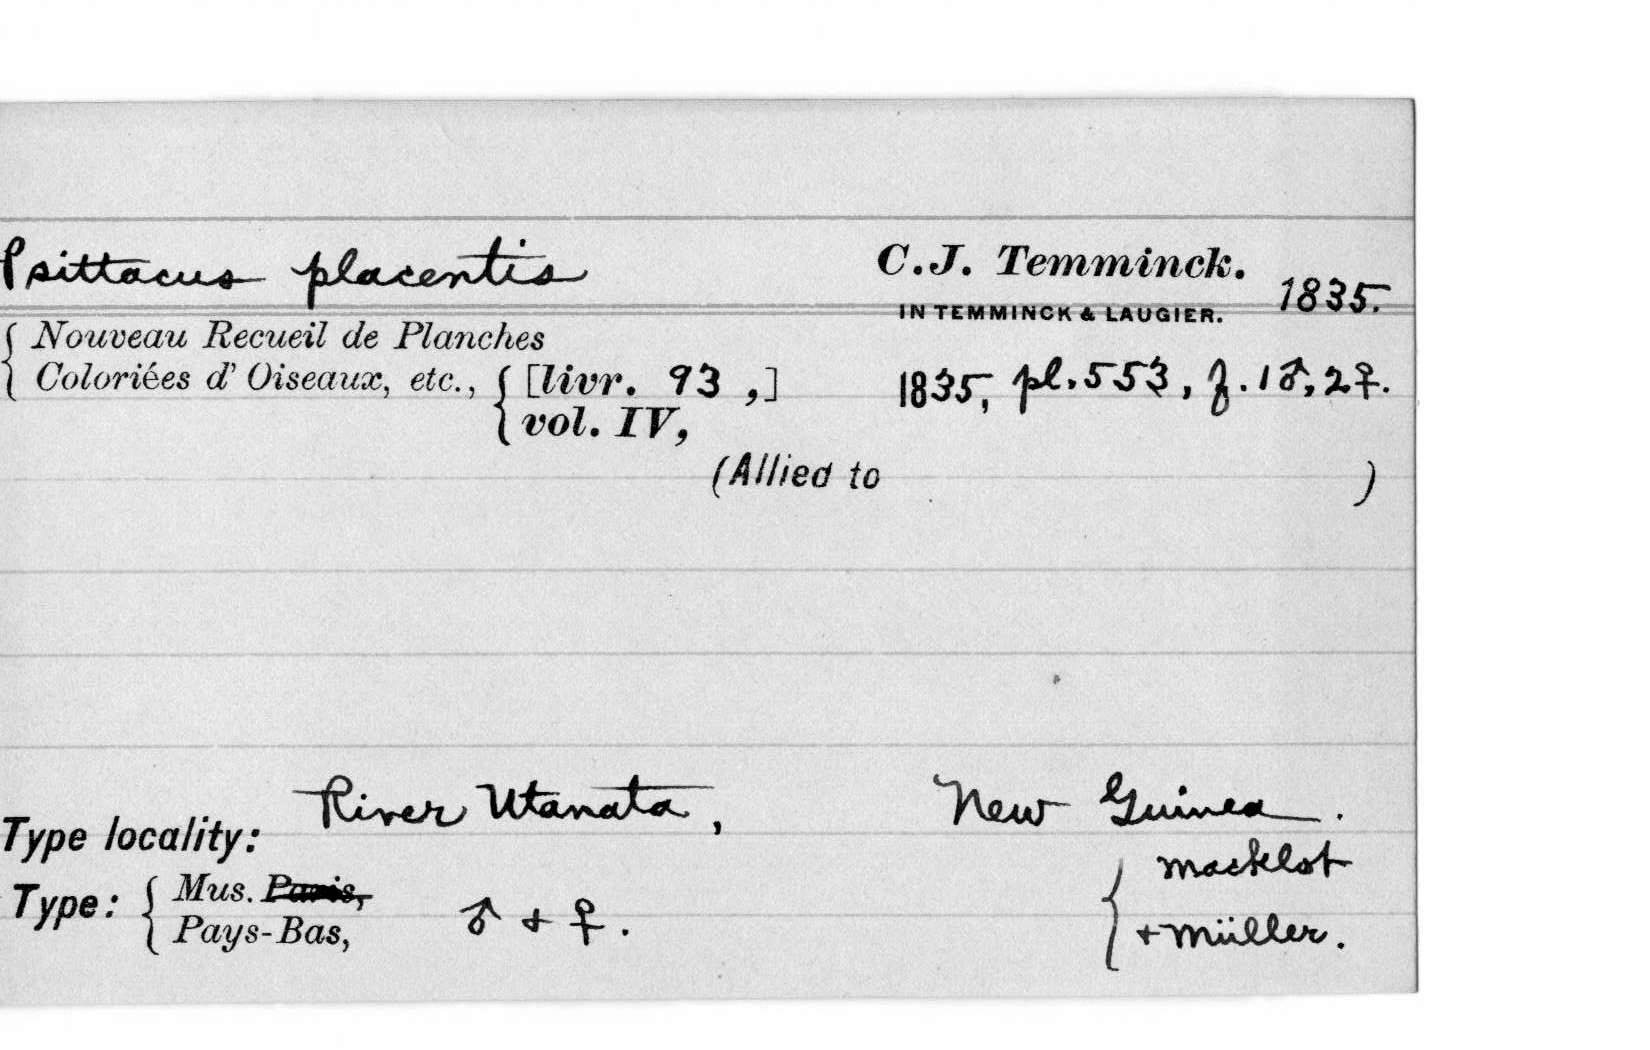 Psittacus placentis C.J. Temminck.
IN TEMMINCK & LAUGIER. 1835.
{ Nouveau Recueil de Planches
Coloriées d' Oiseaux, etc., { [livr. 93 ,] 1835, pl. 553, f. 1♂, 2♀.
vol. IV,
(Allied to )
Type locality: River Utanata, New Guinea.
Type: { Mus. Paris, { Macklot
Pays-Bas, ♂ + ♀. + Müller.